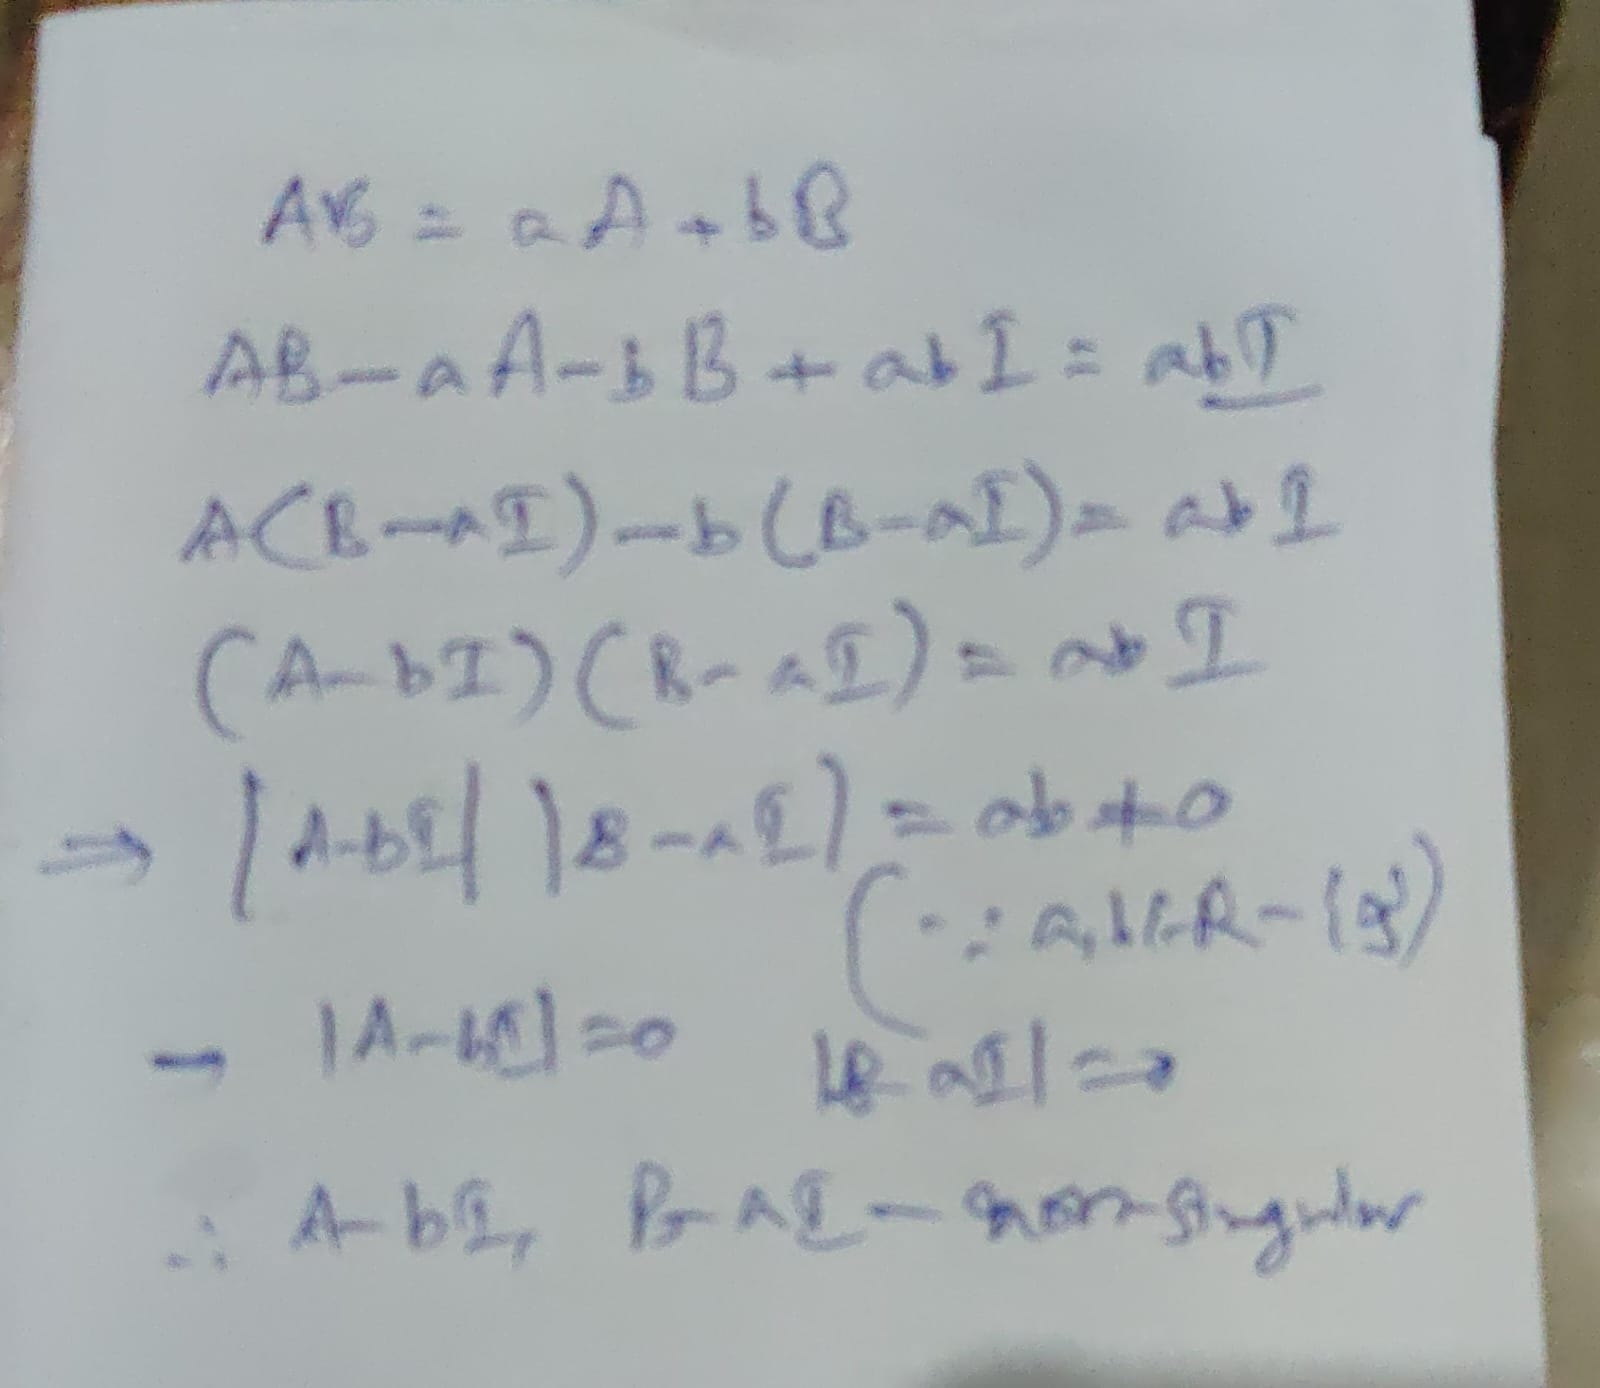 AB = aA + bB
AB - aA - bB + abI = abI
A(B - aI) - b(B - aI) = abI
(A - bI)(B - aI) = abI
⇒ |A-bI| |B-aI| = ab ≠ 0
(∵ a,b∈R-{0})
- |A-bI| =0 |B-aI| =0
∴ A-bI, B-aI - non-singular